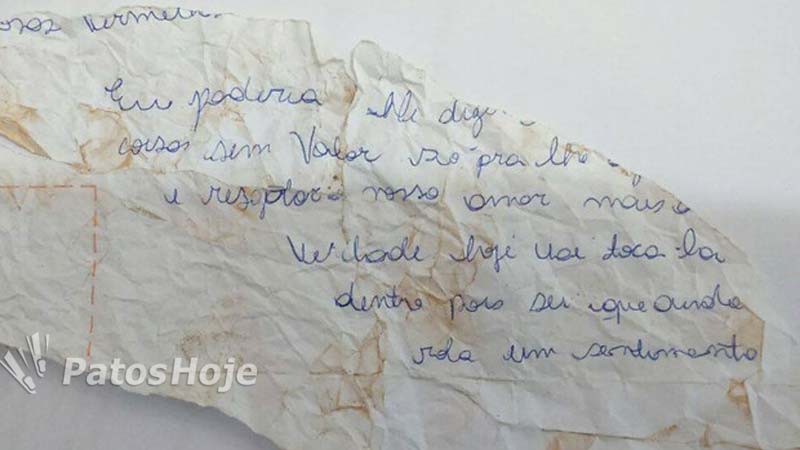 Eu poderia lhe dize
coisas sem Valor só pra lhe
e resgatar o nosso amor mais a
Verdade hoje vai toca la
dentro pois sei que ainda
um sentimento
PatosHoje